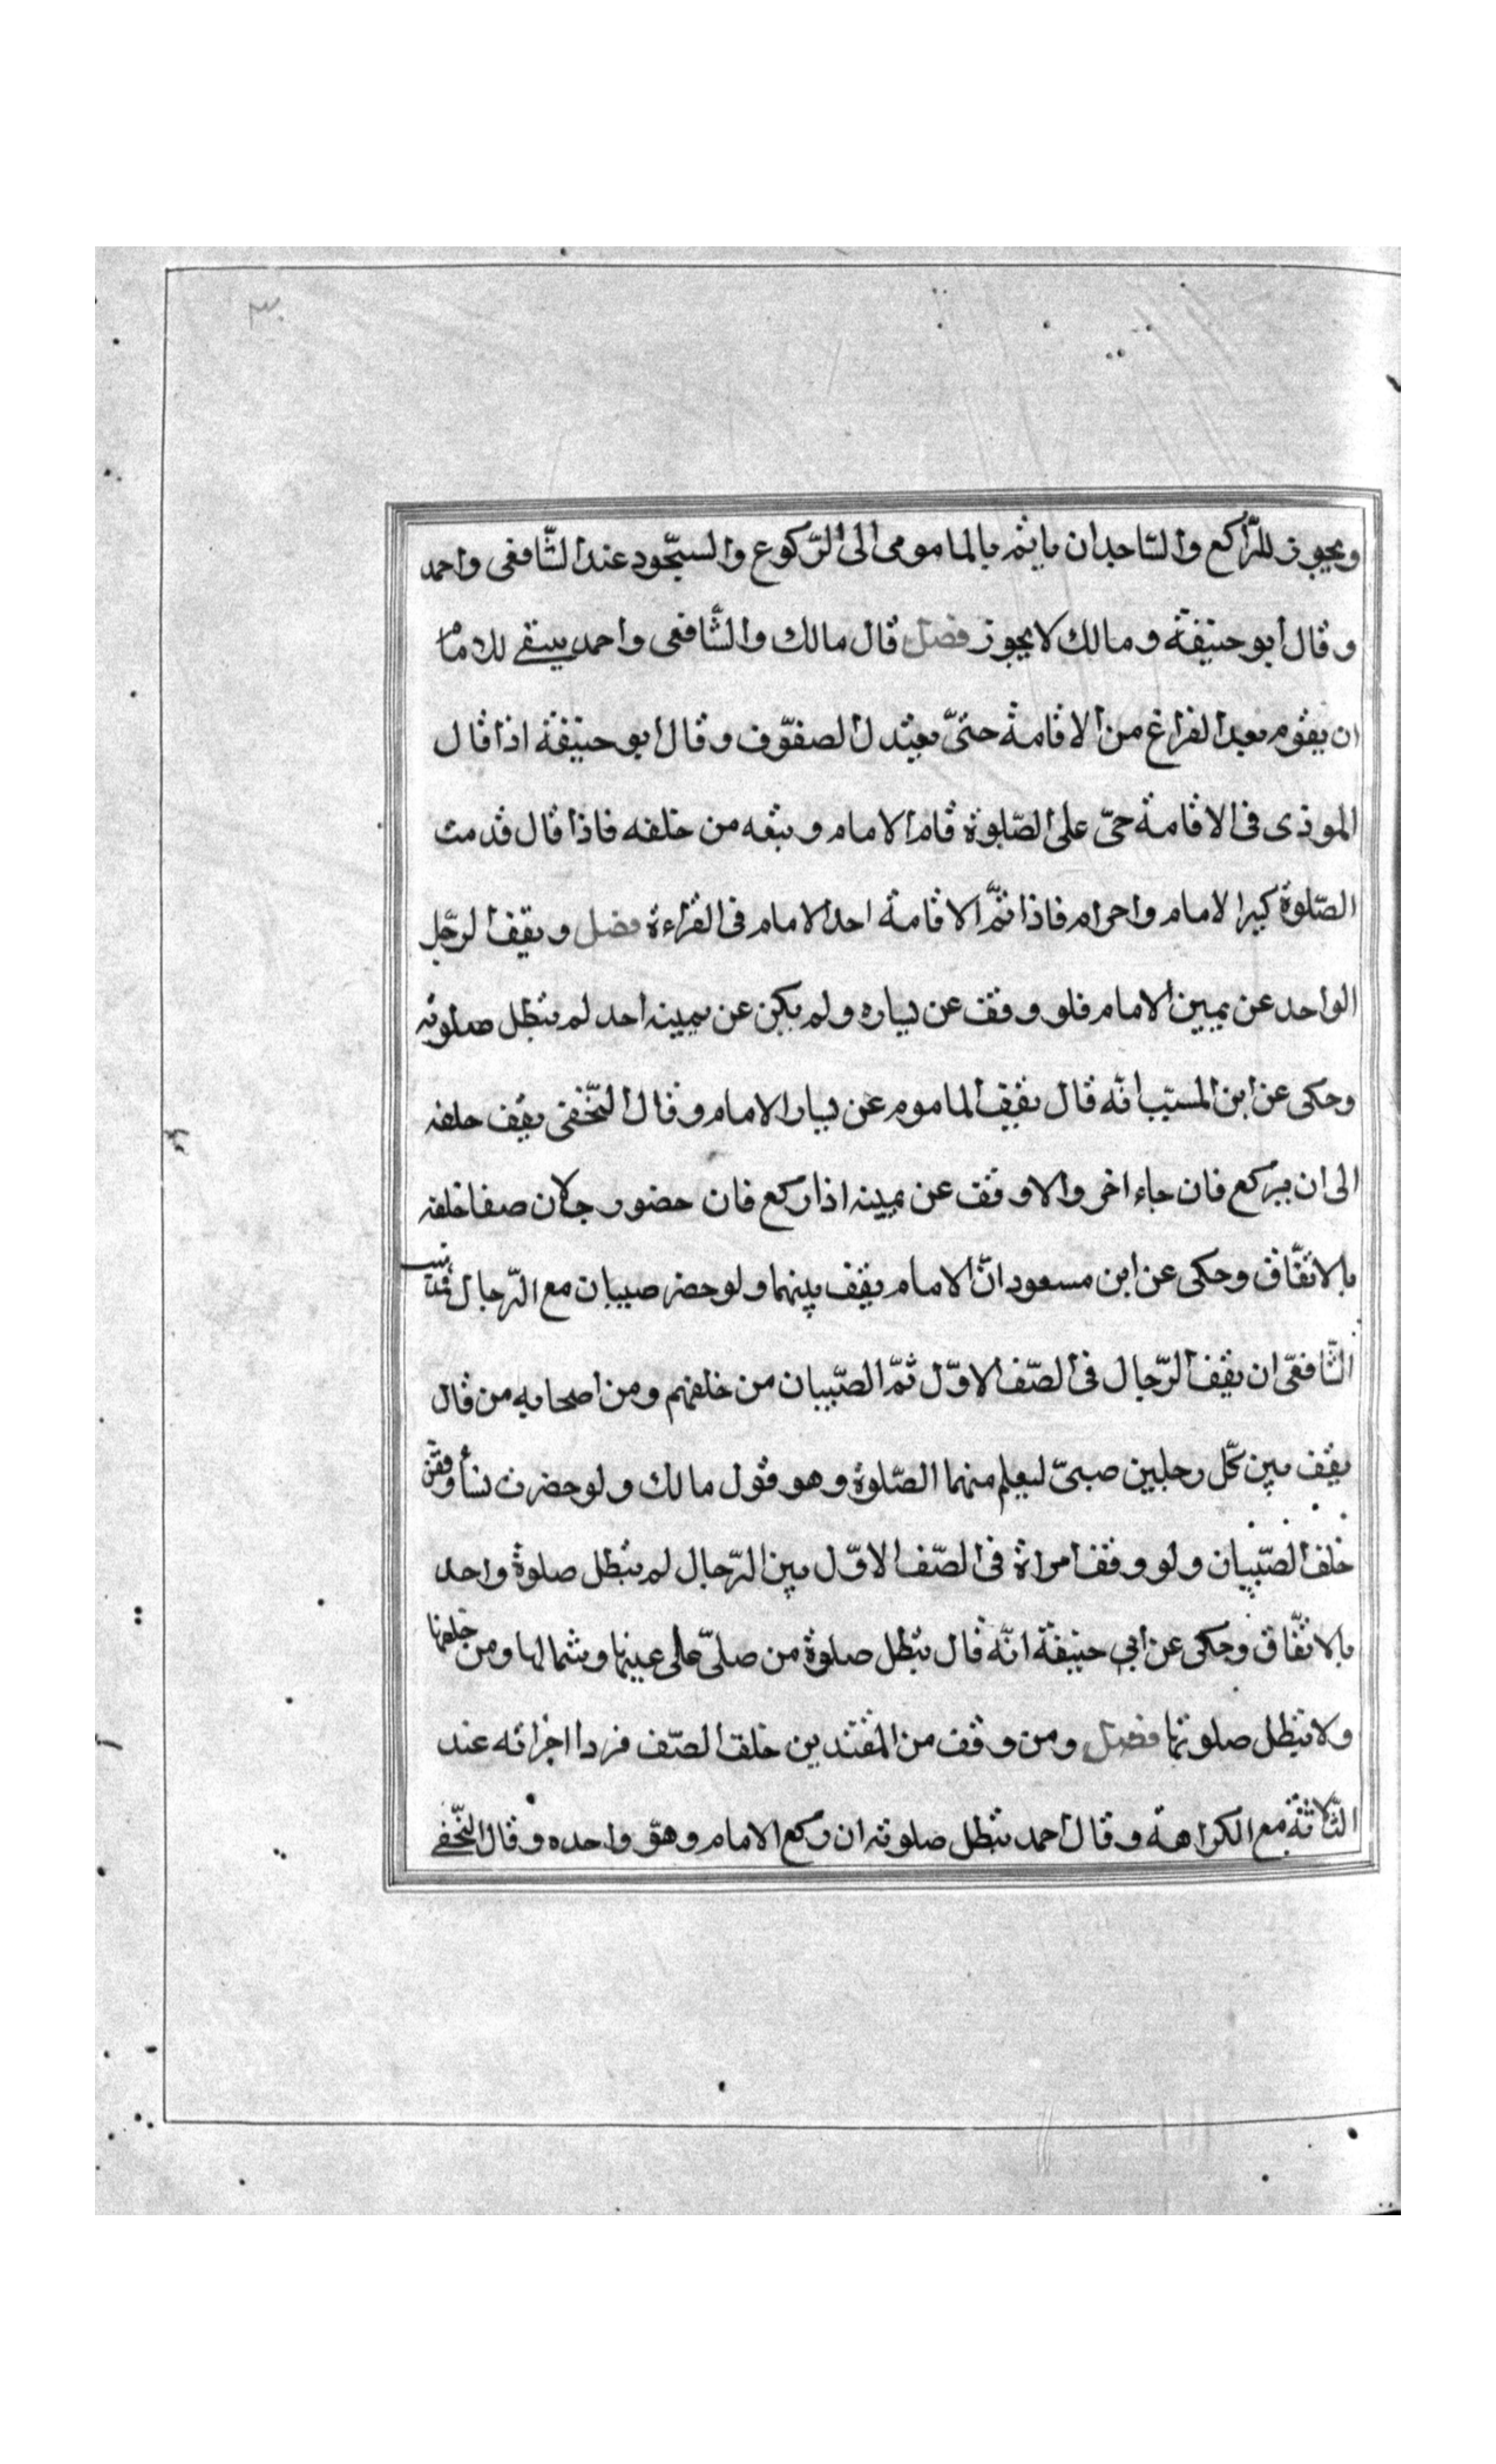 ٣٠
ويجوز للرّاكع والسّاجد ان ياتم بالمامومى الى الرّكوع والسّجود عند الشّافعى واحمد
وقال ابو حنيفة ومالك لا يجوز فصل قال مالك والشّافعى واحمد ينبغى للامام
ان يقوم بعد الفراغ من الاقامة حتىّ يعتدل الصفوّف وقال ابو حنيفة اذا قال
الموذى فى الاقامة حىّ على الصّلوة قام الامام وتبعه من خلفه فاذا قال قد مت
الصّلوة كبر الامام واحرام فاذا تمّ الاقامة احد الامام فى القراءة فصل ويقف الرّجل
الواحد عن يمين الامام فلو وقف عن يساره ولم يكن عن يمينه احد لم تبطل صلوته
وحكى عن ابن المسيّب انّه قال يقف الماموم عن يسار الامام وقال النّخفى يقف خلفه
الى ان يركع فان جاء اخر والا وقف عن يمينه اذا ركع فان حضور رجلان صفا خلفه
بالاتّفاق وحكى عن ابن مسعود انّ الامام يقف بينهما ولو حضر صبيان مع الرّجال
الشّافعّى ان يقف الرّجال فى الصّف الاوّل ثمّ الصّبيان من خلفهم ومن اصحابه من قال
يقف بين كلّ رجلين صبىّ ليعلم منهما الصّلوة وهو قول مالك ولو حضرت نسأ وقفن
خلف الصّبيان ولو وقف امراة فى الصّف الاوّل بين الرّجال لم تبطل صلوة واحد
بالاتّفاق وحكى عن ابي حنيفة انّه قال تبطل صلوة من صلىّ على عينها وشمالها ومن خلفها
ولا تبطل صلوتها فصل ومن وقف من المقتدين خلف الصّف فردا اجزائه عند
الثّلاثة مع الكراهة وقال احمد تبطل صلوته ان ركع الامام وهو واحده وقال النّخفى